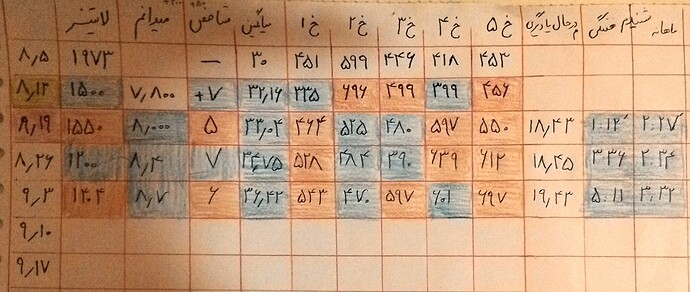 لایتنر میدانم شاخص میانگین خ ۱ خ ۲ خ ۳ خ ۴ خ ۵ درحال یادگیری هفتگی شنیدم ماهانه
۸٫۵ ۱۹۷۳ — ۳۰ ۴۵۱ ۵۹۹ ۴۴۶ ۴۱۸ ۴۵۳
۸٫۱۲ ۱۵۰۰ ۷٫۸۰۰ +۷ ۳۲٫۱۶ ۲۳۵ ۶۹۶ ۴۹۹ ۳۹۹ ۴۵۶
۸٫۱۹ ۱۵۵۰ ۸٫۰۰۰ ۵ ۳۳٫۰۴ ۴۶۴ ۵۲۵ ۴۸۰ ۵۹۷ ۵۵۰ ۱۸٫۴۳ ۱:۱۲ ۲:۲۷
۸٫۲۶ ۱۲۰۰ ۸٫۴ ۷ ۳۴٫۷۵ ۵۲۸ ۴۸۴ ۳۹۰ ۶۳۹ ۶۱۲ ۱۸٫۴۵ ۳:۳۶ ۲:۳۴
۹٫۳ ۱۴۰۴ ۸٫۷ ۶ ۳۶٫۴۲ ۵۴۳ ۴۷۰ ۵۹۷ ۶۰۱ ۶۹۷ ۱۹٫۴۳ ۵:۱۱ ۳:۳۲
۹٫۱۰
۹٫۱۷